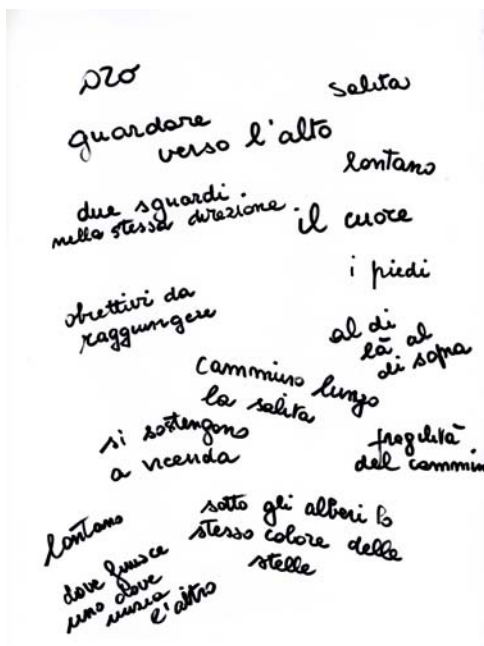 oro
salita
guardare
verso l'alto
lontano
due sguardi.
nella stessa direzione.
il cuore
i piedi
obiettivi da
raggiungere
al di
là al
di sopra
cammino lungo
la salita
si sostengono
a vicenda
fragilità
del cammin
lontano
sotto gli alberi lo
stesso colore delle
stelle
dove finisce
uno dove
inizia
l'altro